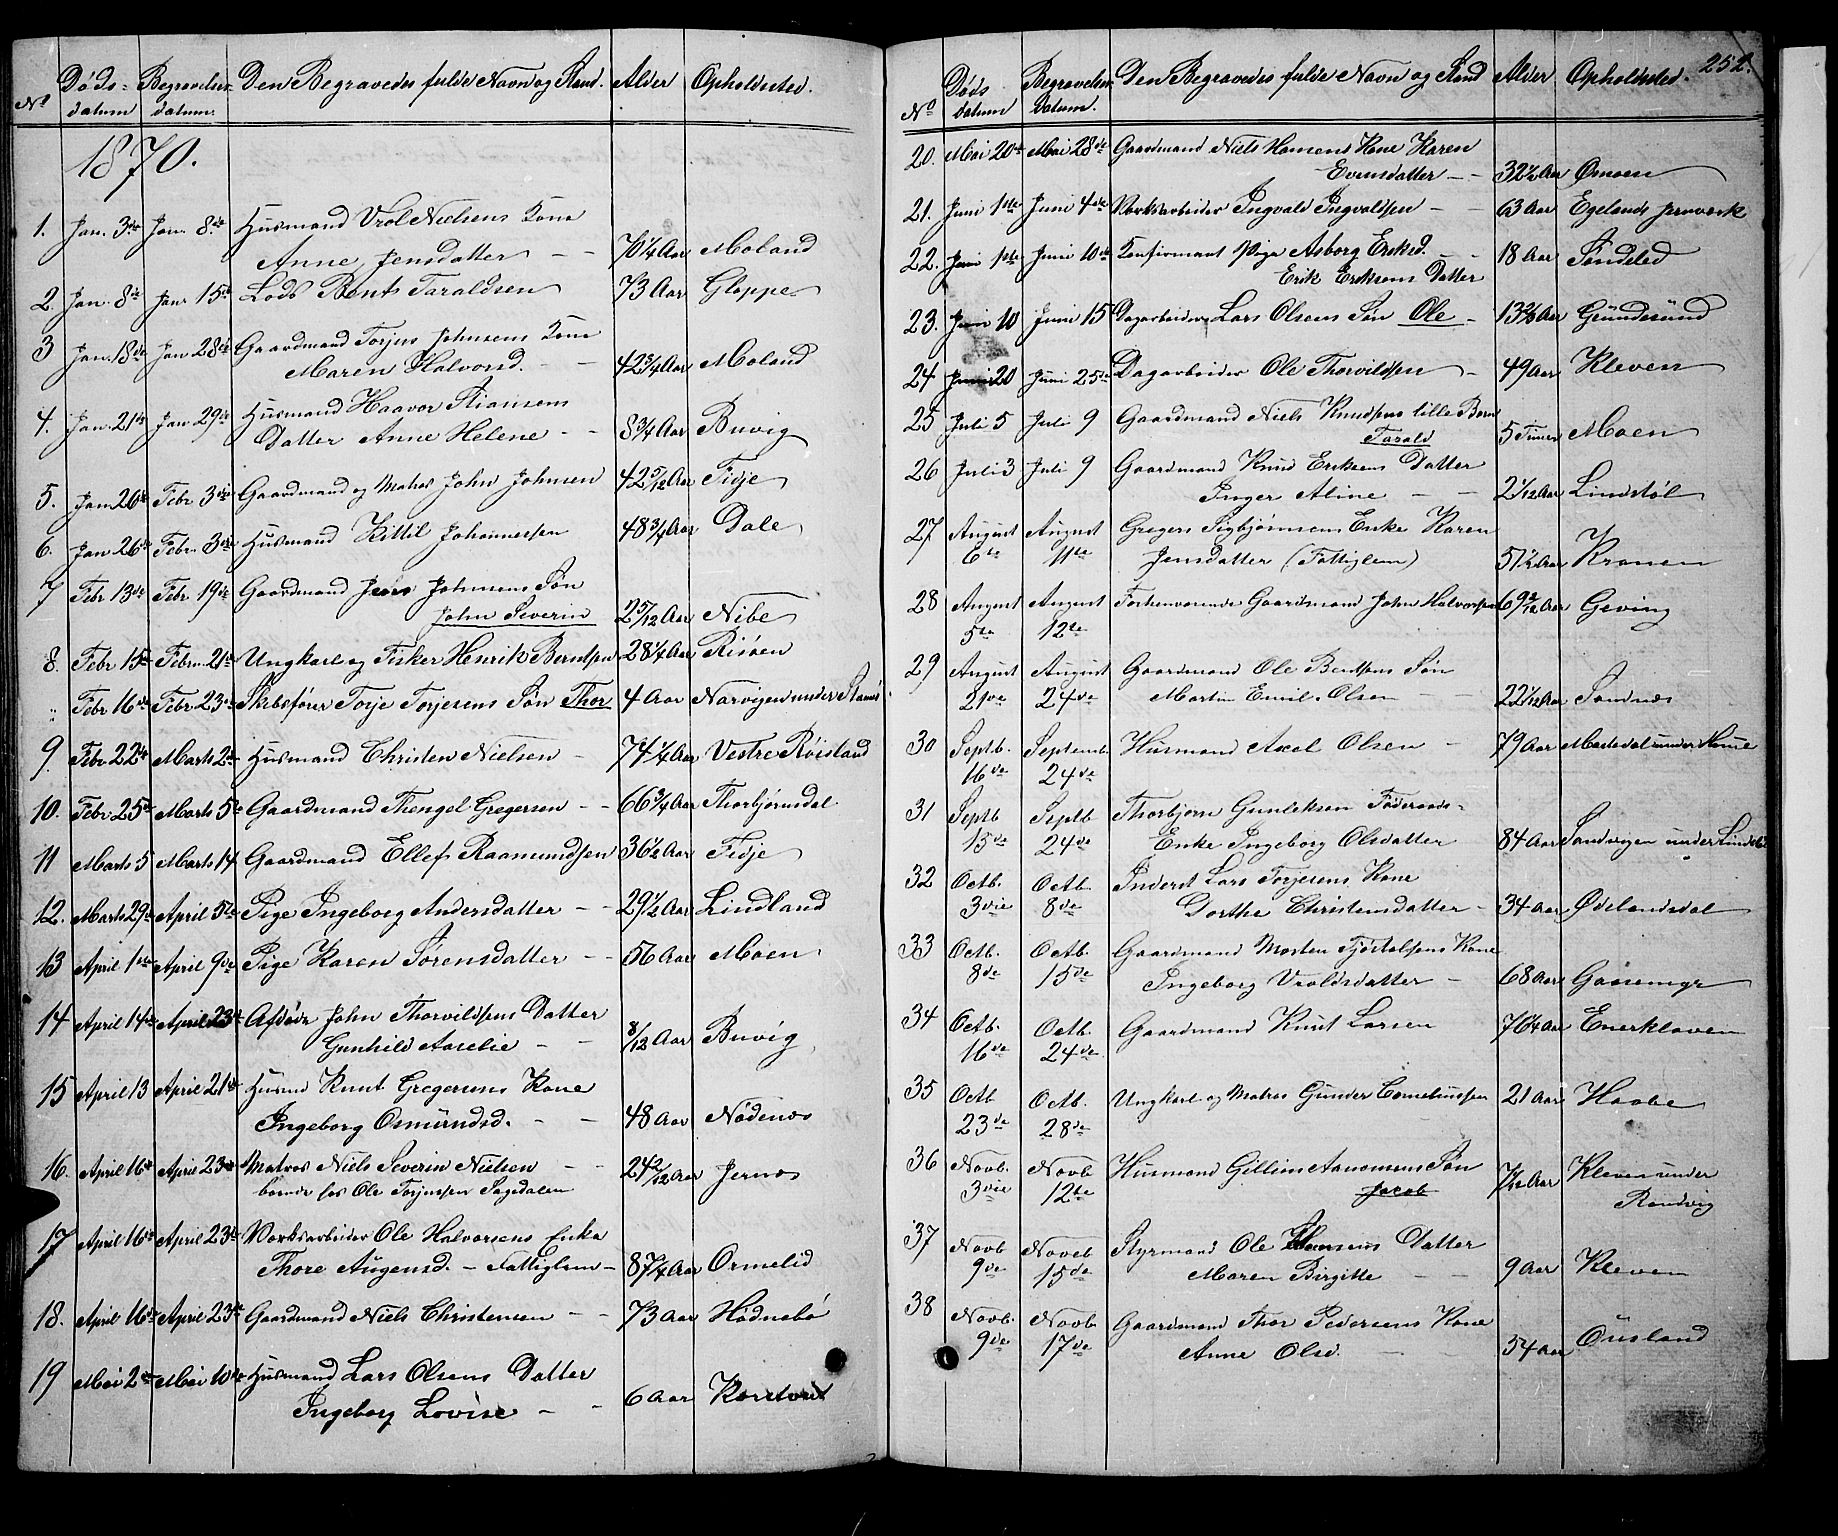 No Døds- Begravelses- Den Begravedes fulde Navn og Stand. Alder Opholdssted.
datum datum.
1870.
1. Jan. 3de Jan. 8de Husmand Vrol Nielsens Kone
Anne Jensdatter - - 70 1/4 Aar Moland
2. Jan. 8de Janr 15de Lods Bent Taraldsen 73 Aar Gloppe
3 Jan. 18de Jan 28de Gaardmand Torjus Johnsens Kone
Maren Halvorsd. - - 42 3/4 Aar Moland
4. Jan. 21de Jan 29de Husmand Haavor Stiansens
Datter Anne Helene - - 8 3/4 Aar Buvig
5. Jan 26de Febr 3die Gaardmand og Matros John Johnsen 42 5/12 Aar Fidje
6. Jan 26de Febr. 3die Husmand Kittil Johannessen 48 3/4 Aar Dale
7 Febr 13de Febr. 19de Gaardmand Jens Johnsens Søn
John Severin 2 5/12 Aar Nibe
8. Febr 15de Febru 21de Ungkarl og Fisker Henrik Berntsen 28 1/4 Aar Risøen
" Febr 16de Febr. 23de Skibsfører Torje Torjesens Søn Thor 4 Aar Narvigen under
9. Febr. 22de Marts 2de Husmand Christen Nielsen - 74 1/4 Aar Vestre Røisland
10. Febr 25de Marts 5te Gaardmand Thengel Gregersen - - 66 3/4 Aar Thorbjørnsdal
11 Marts 5 Marts 14 Gaardmand Ellef Raamundsen 36 1/2 Aar Fidje
12. Marts 29de April 5te Pige Ingeborg Andersdatter - - 29 1/2 Aar Lindland
13 April 1ste April 9de Pige Karen Sørensdatter - - 56 Aar Moen
14 April 14de April 23de Afdøde John Thorvildsens Datter
Gunhild Aurelie - - 8/12 Aar Buvig
15 April 13 April 21de Husmd Knut Gregersens Kone
Ingeborg Osmundsd. - - 48 Aar Nødenes
16. April 16de April 23de Matros Niels Severin Nielsen - -
boende hos Ole Torjussen Sagedalen 24 2/12 Aar Jernes
17 April 16de April 23de Værksarbeider Ole Halvorsens Enke
Thore Augensd. - Fattiglem - 87 1/4 Aar Ormelid
18. April 16de April 23de Gaardmand Niels Christensen - - 73 Aar Hødnebø
19 Mai 2den Mai 10de Husmand Lars Olsens Datter
Ingeborg Lovise - - 6 Aar
252.
No Døds Begravelses Den Begravedes fulde Navn og Stand Alder Opholdssted.
datum Datum.
20. Mai 20de Mai 28de Gaardmand Niels Hansens Kone Karen
Evensdatter - - 32 1/2 Aar Øsnoen
21. Juni 1ste Juni 4de Værksarbeider Ingvald Ingvaldsen - - 63 Aar Egelands Jernverk
22. Juni 1ste Juni 10de Konfirmant Pige Asborg Eriksd. -
Erik Eriksens Datter 18 Aar Søndeled
23. Juni 10 Juni 15 Dagarbeider Lars Olsens Søn Ole - 13 Aar Grundesund
24 Juni 20 Juni 25de Dagarbeider Ole Thorvildsen - 49 Aar Kleven
25 Juli 5 Juli 9 Gaardmand Niels Knudsens lille Barn
Tarald 5 Timer Moen
26 Juli 3 Juli 9 Gaardmand Knud Eriksens Datter
Inger Aline - - 2 1/12 Aar Lindstøl
27 August August Gregers Sigbjørnsens Enke Karen
6te 11te Jensdatter (Fattiglem) 51 1/2 Aar Kranen
28 August August Forhenværende Gaardmand John Halvorsen 69 2/12 Aar Geving
5te 12te
29 August August Gaardmand Ole Bentsens Søn
21de 24de Martin Emil Olsen - - 22 1/12 Aar Sandnes
30 Septb. Septemb. Husmand Axel Olsen - 79 Aar
16de 24de
31 Septb Septb Thorbjørn Gunleksen Føderaads-
15de 24de Enke Ingeborg Olsdatter 84 Aar Sandvigen under Lindstøl
32 Octb. Octb. Inderst Lars Torjesens Kone
3die 8de Dorthe Christensdatter - 34 Aar Ødelandsdal
33 Octb. Octb. Gaardmand Morten Tjostolsens Kone
8de 15de Ingeborg Vroldsdatter - 68 Aar Gaasemyr
34 Octb. Octb. Gaardmand Knut Larsen 76 1/4 Aar Enerkleven
16de 24de
35 Octb Octb. Ungkarl og Matros Gunder Corneliussen 21 Aar Haabe
23de 28de
36 Novb. Novb Husmand Gillem Aanonsens Søn
3die 12te Jacob 7/12 Aar Kleven under
Randvig
37 Novb Noveb Styrmand Ole Hansens Datter
9de 15de Maren Birgitte - - 9 Aar Kleven
38 Novb. Novb. Gaardmand Thor Pedersens Kone
9de 17de Anne Olsd. - - 54 Aar Ousland